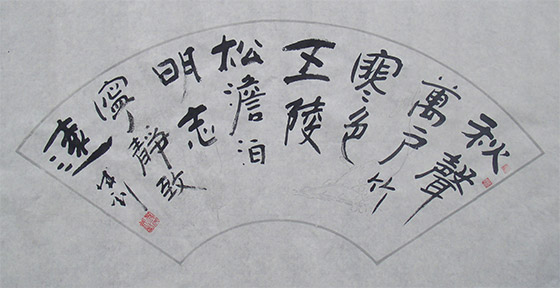 秋聲
萬戶竹
寒色
五陵
松澹泊
明志
寧靜致
遠